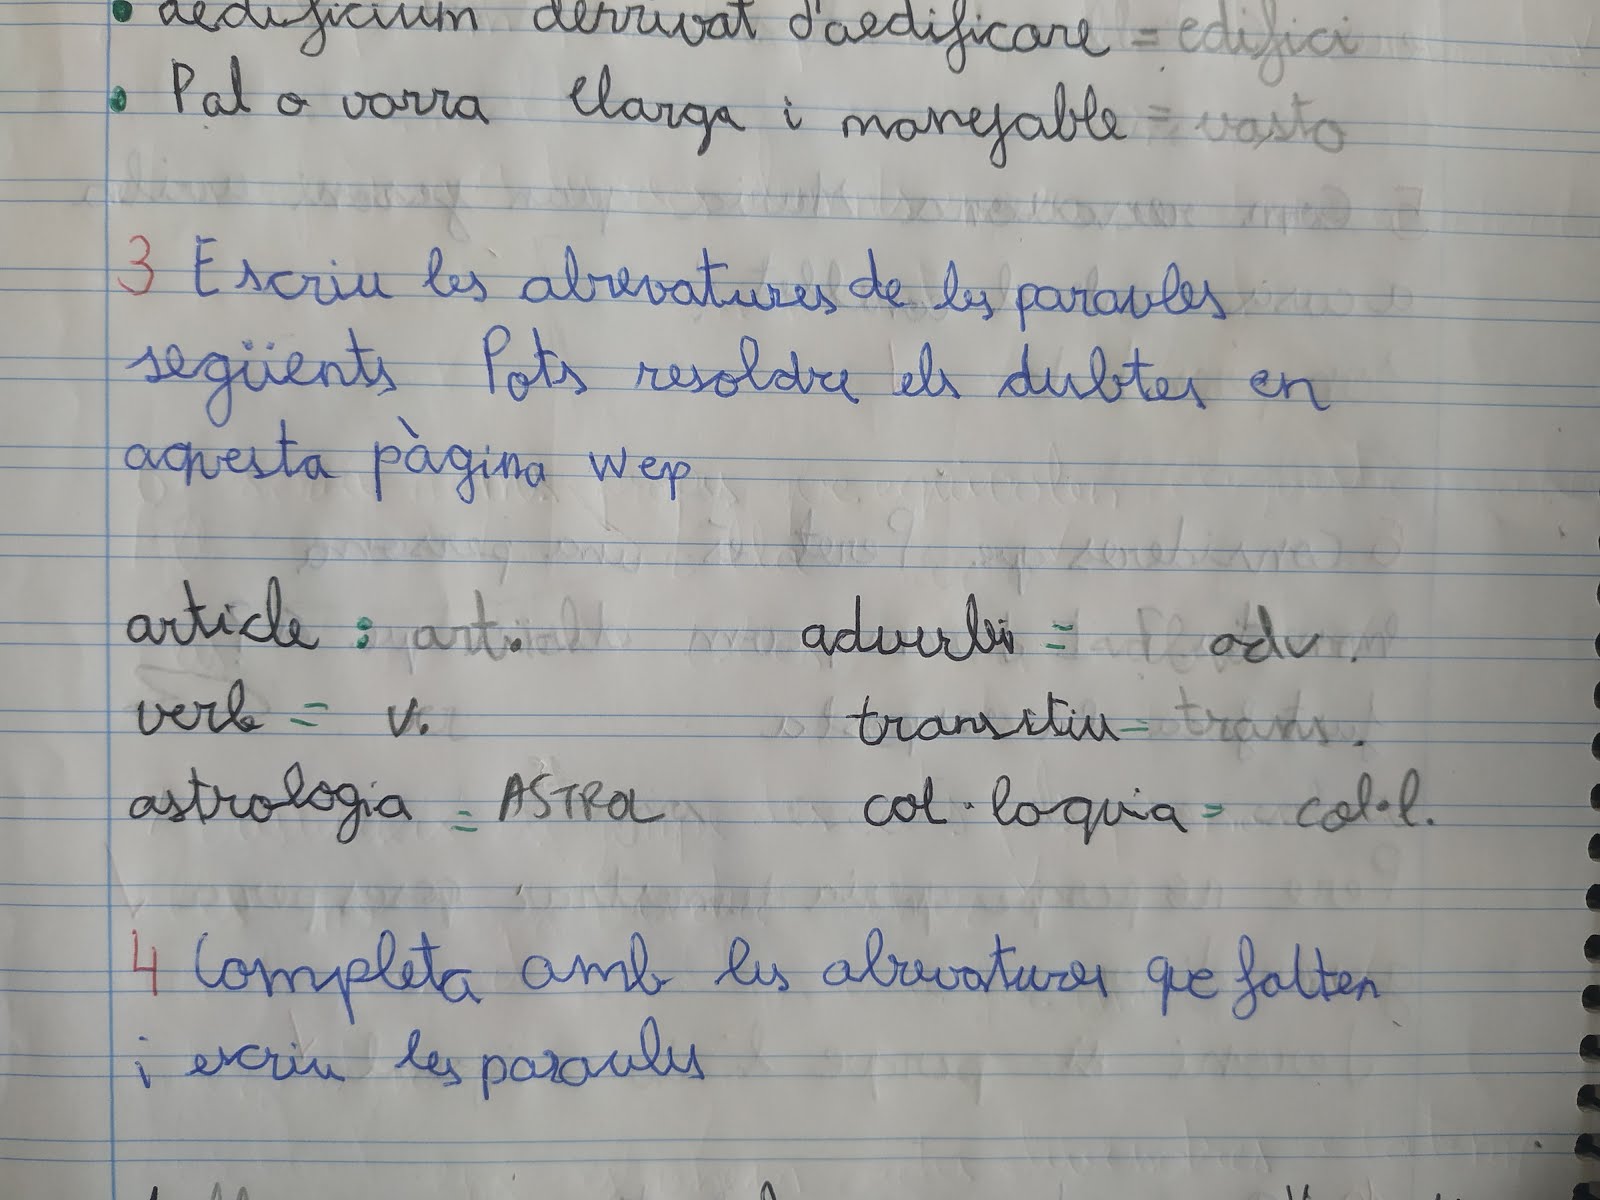 aedificium derrivat d'aedificare = edifici
Pal o varra llarga i manejable = vasto
3 Escriu les abrevatures de les paraules
següents Pots resoldre els dubtes en
aquesta pàgina wep
article : art. adverbi = adv.
verb = v. transitiu = trans.
astrologia = ASTROL col·loquia = col·l.
4 Completa amb les abrevatures que falten
i escriu les paraules